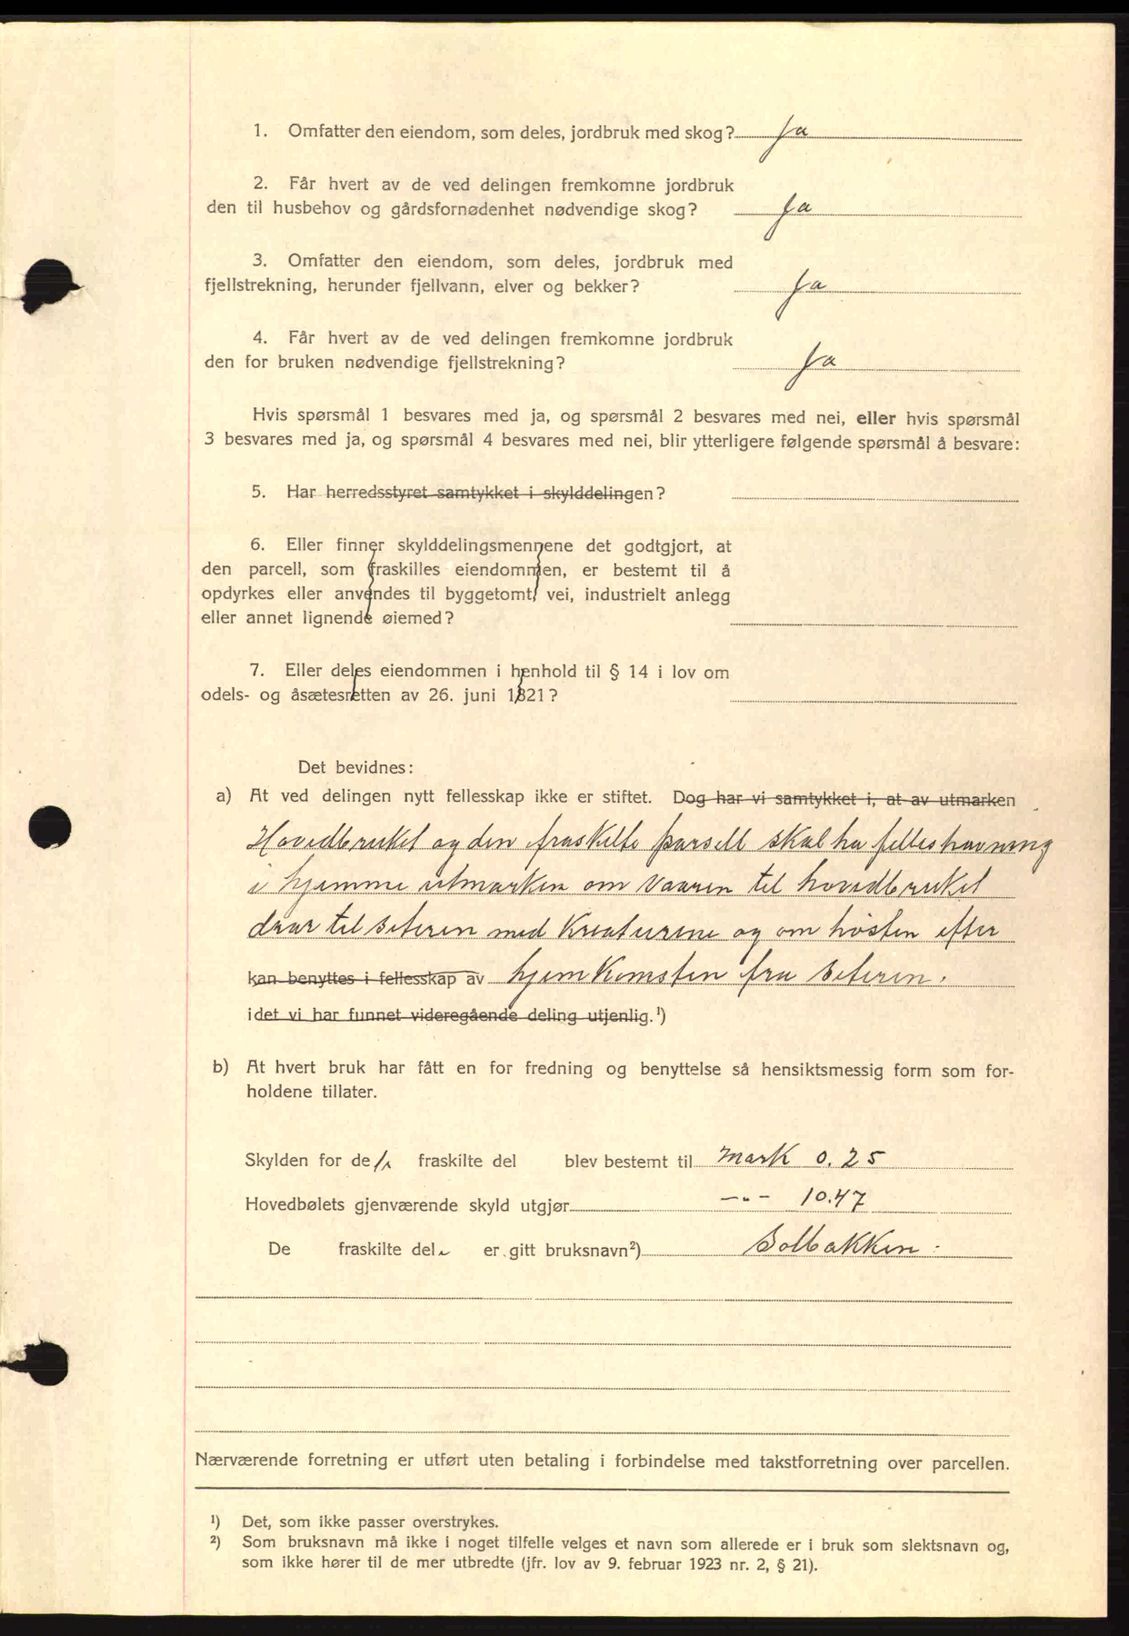 1. Omfatter den eiendom, som deles, jordbruk med skog? Ja
2. Får hvert av de ved delingen fremkomne jordbruk
den til husbehov og gårdsfornødenhet nødvendige skog? Ja
3. Omfatter den eiendom, som deles, jordbruk med
fjellstrekning, herunder fjellvann, elver og bekker? Ja
4. Får hvert av de ved delingen fremkomne jordbruk
den for bruken nødvendige fjellstrekning? Ja
Hvis spørsmål 1 besvares med ja, og spørsmål 2 besvares med nei, eller hvis spørsmål
3 besvares med ja, og spørsmål 4 besvares med nei, blir ytterligere følgende spørsmål å besvare:
5. Har herredsstyret samtykket i skylddelingen?
6. Eller finner skylddelingsmennene det godtgjort, at
den parcell, som fraskilles eiendommen, er bestemt til å
opdyrkes eller anvendes til byggetomt, vei, industrielt anlegg
eller annet lignende øiemed?
7. Eller deles eiendommen i henhold til § 14 i lov om
odels- og åsætesretten av 26. juni 1821?
Det bevidnes:
a) At ved delingen nytt fellesskap ikke er stiftet. Dog har vi samtykket i, at av utmarken
Hovedbruket og den fraskilte parsell skal ha felleshavning
i hjemme utmarken om vaaren til hovedbruket
drar til seteren med kreaturene og om hösten efter
kan benyttes i fellesskap av hjemkomsten fra seteren.
idet vi har funnet videregående deling utjenlig.¹)
b) At hvert bruk har fått en for fredning og benyttelse så hensiktsmessig form som for-
holdene tillater.
Skylden for de/n fraskilte del blev bestemt til mark 0.25
Hovedbølets gjenværende skyld utgjør -"- 10.47
De fraskilte del er gitt bruksnavn²) Solbakken.
Nærværende forretning er utført uten betaling i forbindelse med takstforretning over parcellen.
¹) Det, som ikke passer overstrykes.
²) Som bruksnavn må ikke i noget tilfelle velges et navn som allerede er i bruk som slektsnavn og,
som ikke hører til de mer utbredte (jfr. lov av 9. februar 1923 nr. 2, § 21).